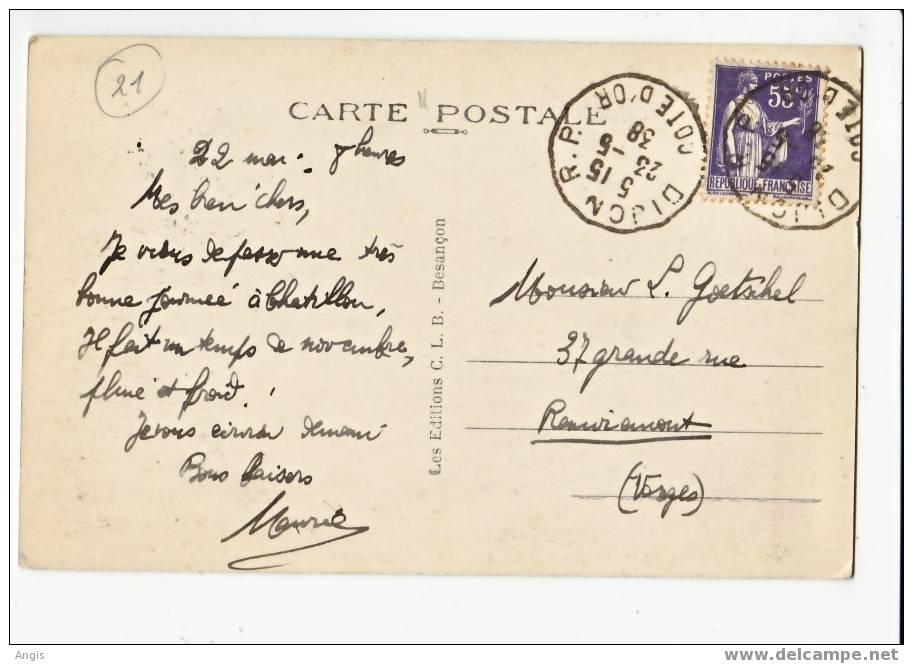 21
CARTE POSTALE
22 mai. 7 heures
Mes bien chers,
Je viens de passer une très
bonne journée à Chatillon,
Il fait un temps de novembre,
pluie et froid !
Je vous écrirai demain
Bons baisers
Maurice
Les Editions C. L. B. - Besançon
DIJON R. P.
COTE D'OR
5 15
23 -5
38
POSTES
55c
REPUBLIQUE FRANÇAISE
DIJON R. P.
COTE D'OR
Monsieur L. Goetschel
37 grande rue
Remiremont
(Vosges)
Angis
www.delcampe.net